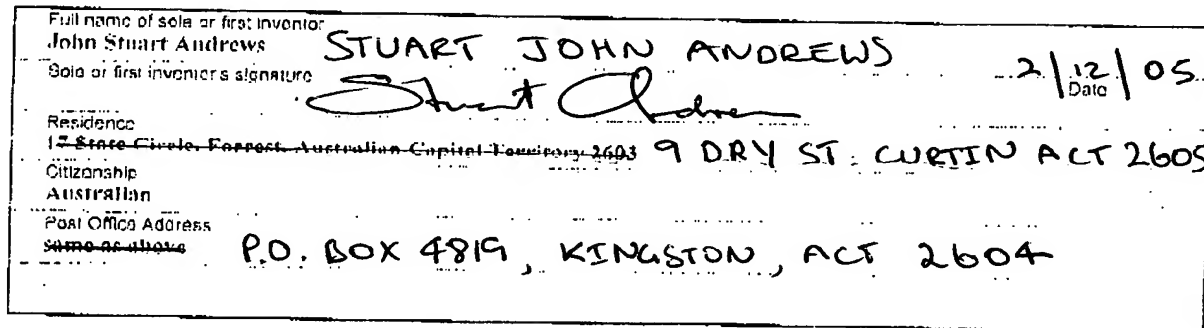 Full name of sole or first inventor
John Stuart Andrews STUART JOHN ANDREWS
Sole or first inventor's signature Stuart Andrew 2/12/05
Date
Residence
17 State Circle, Forrest, Australian Capital Territory 2603 9 DRY ST. CURTIN ACT 2605
Citizenship
Australian
Post Office Address
same as above P.O. BOX 4819, KINGSTON, ACT 2604